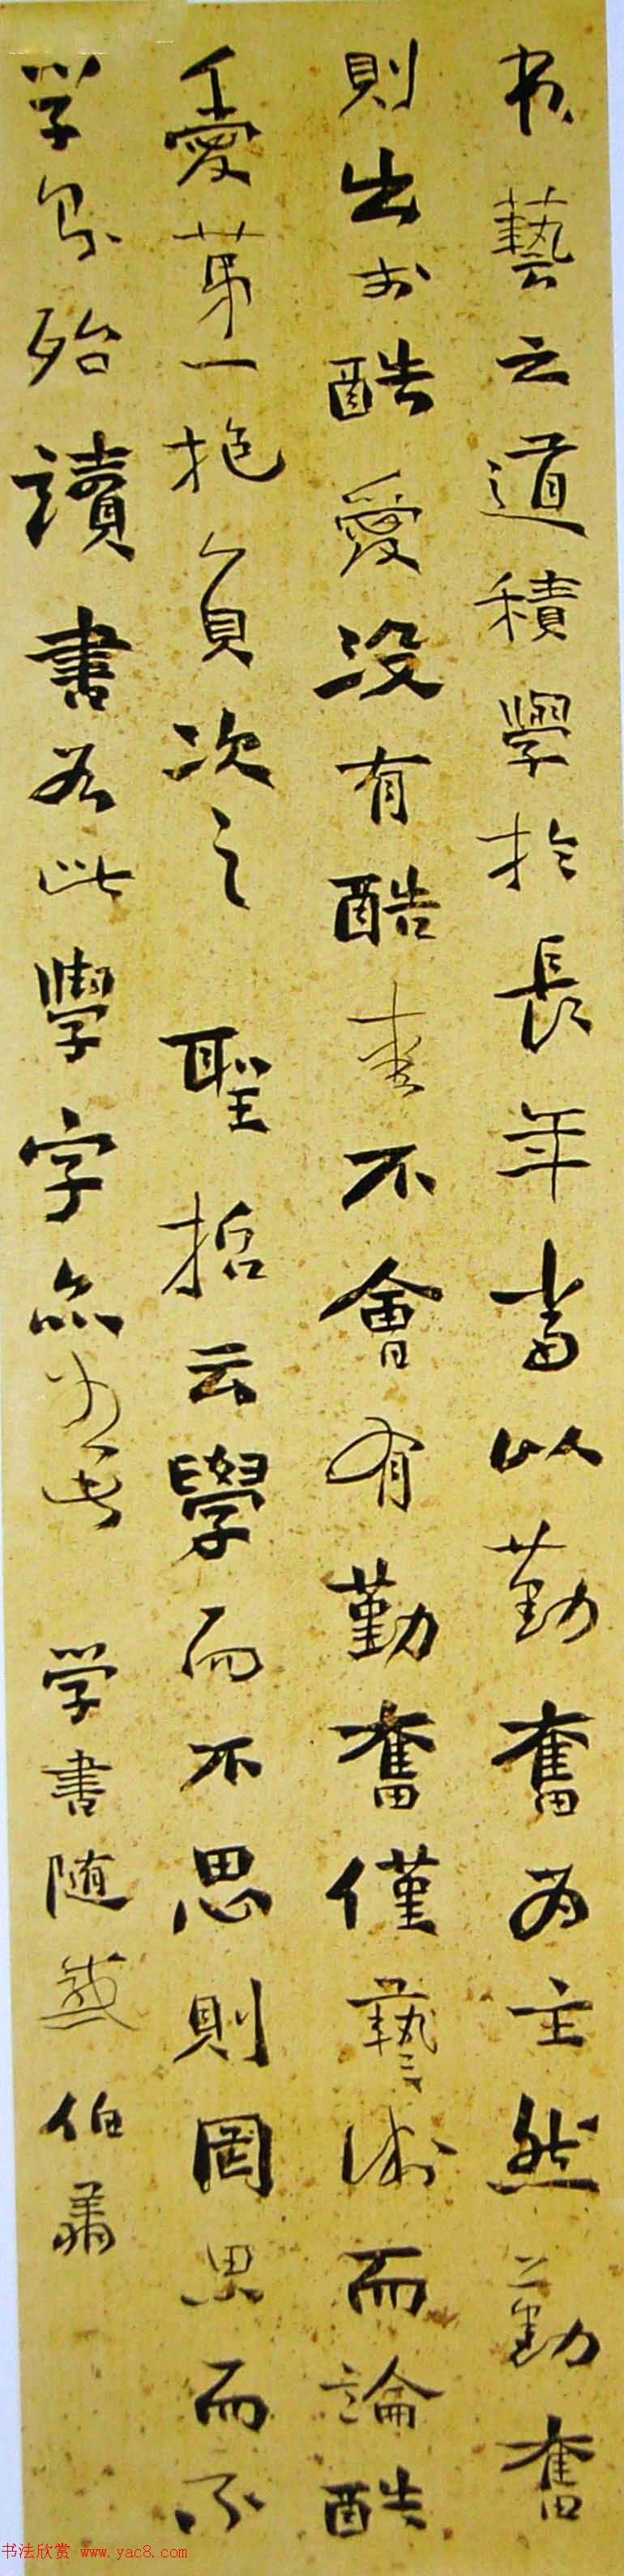 书藝之道積學於長年當以勤奮为主然勤奮
則出於酷愛没有酷愛不會有勤奮僅藝術而論酷
愛第一抱負次之聖哲云學而不思則罔思而不
学则殆讀書如此學字亦
学書随感伯肅
书法欣赏 www.yac8.com